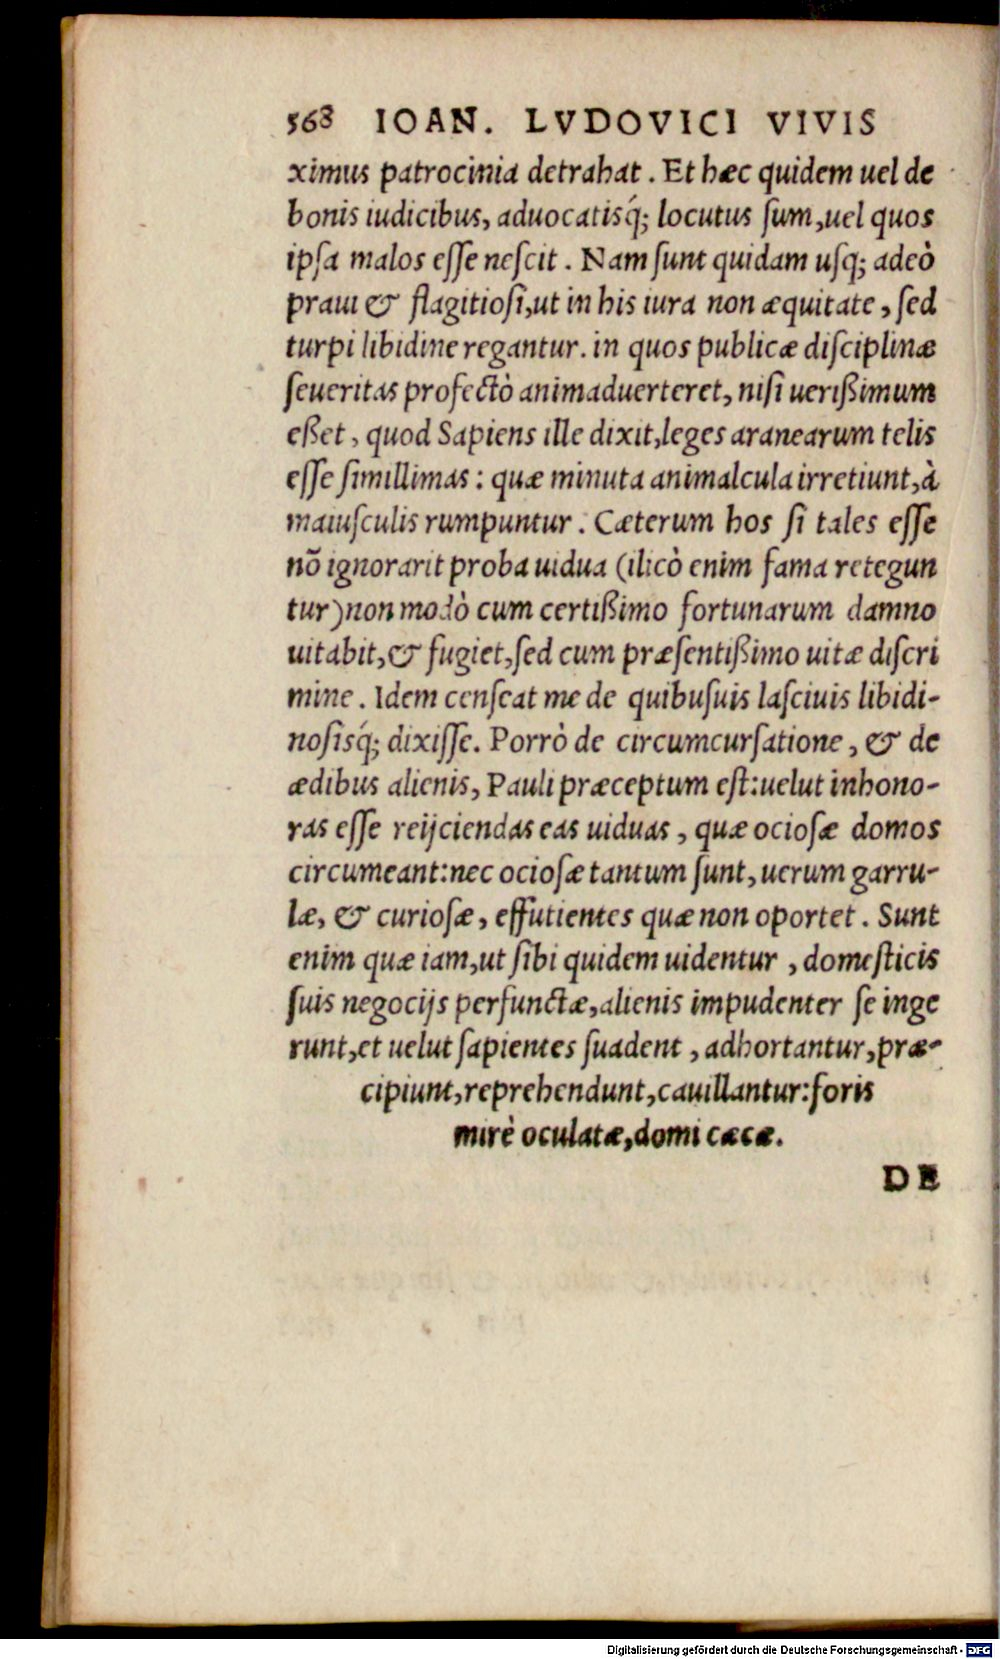 568 IOAN. LVDOVICI VIVIS
ximus patrocinia detrahat. Et hæc quidem uel de
bonis iudicibus, aduocatisq́; locutus ſum, uel quos
ipſa malos eſſe neſcit. Nam ſunt quidam uſq; adeò
praui & flagitioſi, ut in his iura non æquitate, ſed
turpi libidine regantur. in quos publicæ diſciplinæ
ſeueritas profectò animaduerteret, niſi uerißimum
eßet, quod Sapiens ille dixit, leges aranearum telis
eſſe ſimillimas: quæ minuta animalcula irretiunt, à
maiuſculis rumpuntur. Cæterum hos ſi tales eſſe
nõ ignorarit proba uidua (ilicò enim fama retegun
tur) non modò cum certißimo fortunarum damno
uitabit, & fugiet, ſed cum præſentißimo uitæ diſcri
mine. Idem cenſeat me de quibuſuis laſciuis libidi-
noſisq́; dixiſſe. Porrò de circumcurſatione, & de
ædibus alienis, Pauli præceptum eſt: uelut inhono-
ras eſſe reijciendas eas uiduas, quæ ocioſæ domos
circumeant: nec ocioſæ tantum ſunt, uerum garru-
læ, & curioſæ, effutientes quæ non oportet. Sunt
enim quæ iam, ut ſibi quidem uidentur, domeſticis
ſuis negocijs perfunctæ, alienis impudenter ſe inge
runt, et uelut ſapientes ſuadent, adhortantur, præ-
cipiunt, reprehendunt, cauillantur: foris
mirè oculatæ, domi cæcæ.
DE
Digitalisierung gefördert durch die Deutsche Forschungsgemeinschaft - DFG